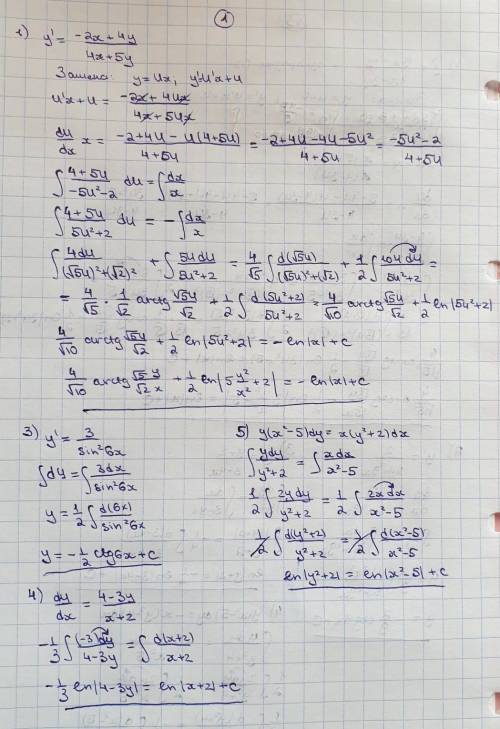 1
1) y' = (-2x+4y)/(4x+5y)
Замена: y=Ux, y'=U'x+U
U'x+U = (-2x+4Ux)/(4x+5Ux)
dU/dx x = (-2+4U-U(4+5U))/(4+5U) = (-2+4U-4U-5U²)/(4+5U) = (-5U²-2)/(4+5U)
∫ (4+5U)/(-5U²-2) dU = ∫ dx/x
∫ (4+5U)/(5U²+2) dU = -∫ dx/x
∫ 4dU/((√5U)²+(√2)²) + ∫ 5UdU/(5U²+2) = 4/√5 ∫ d(√5U)/((√5U)²+(√2)) + 1/2 ∫ 10UdU/(5U²+2) =
= 4/√5 · 1/√2 arctg √5U/√2 + 1/2 ∫ d(5U²+2)/(5U²+2) = 4/√10 arctg √5U/√2 + 1/2 ln|5U²+2|
4/√10 arctg √5U/√2 + 1/2 ln|5U²+2| = -ln|x|+C
4/√10 arctg √5 y/√2 x + 1/2 ln|5 y²/x² +2| = -ln|x|+C
3) y' = 3/sin²6x
∫dy = ∫ 3dx/sin²6x
y = 1/2 ∫ d(6x)/sin²6x
y = -1/2 ctg6x+C
4) dy/dx = (4-3y)/(x+2)
-1/3 ∫ (-3)dy/(4-3y) = ∫ d(x+2)/(x+2)
-1/3 ln|4-3y| = ln|x+2|+C
5) y(x²-5)dy = x(y²+2)dx
∫ ydy/(y²+2) = ∫ xdx/(x²-5)
1/2 ∫ 2ydy/(y²+2) = 1/2 ∫ 2xdx/(x²-5)
1/2 ∫ d(y²+2)/(y²+2) = 1/2 ∫ d(x²-5)/(x²-5)
ln|y²+2| = ln|x²-5|+C